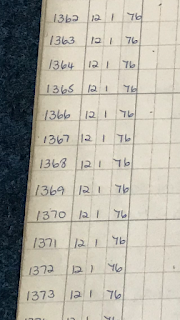 1362 12 1 76
1363 12 1 76
1364 12 1 76
1365 12 1 76
1366 12 1 76
1367 12 1 76
1368 12 1 76
1369 12 1 76
1370 12 1 76
1371 12 1 76
1372 12 1 76
1373 12 1 76